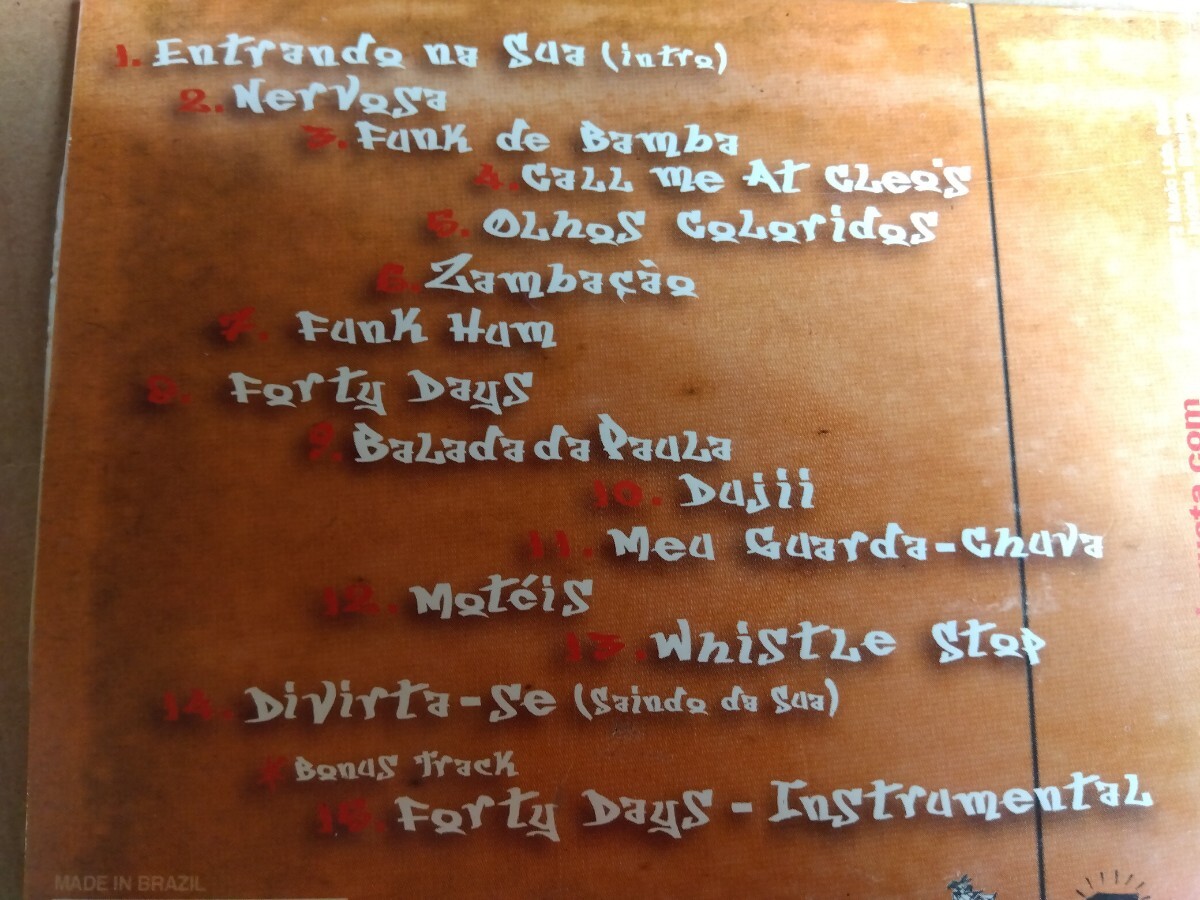 1. Entrando na Sua (intro)
2. Nervosa
3. Funk de Bamba
4. Call me At Cleo's
5. Olhos Coloridos
6. Zambação
7. Funk Hum
8. Forty Days
9. Balada da Paula
10. Dujii
11. Meu Guarda-Chuva
12. Motéis
13. Whistle Stop
14. Divirta-se (Saindo da Sua)
* Bonus Track
15. Forty Days - Instrumental
MADE IN BRAZIL
.com